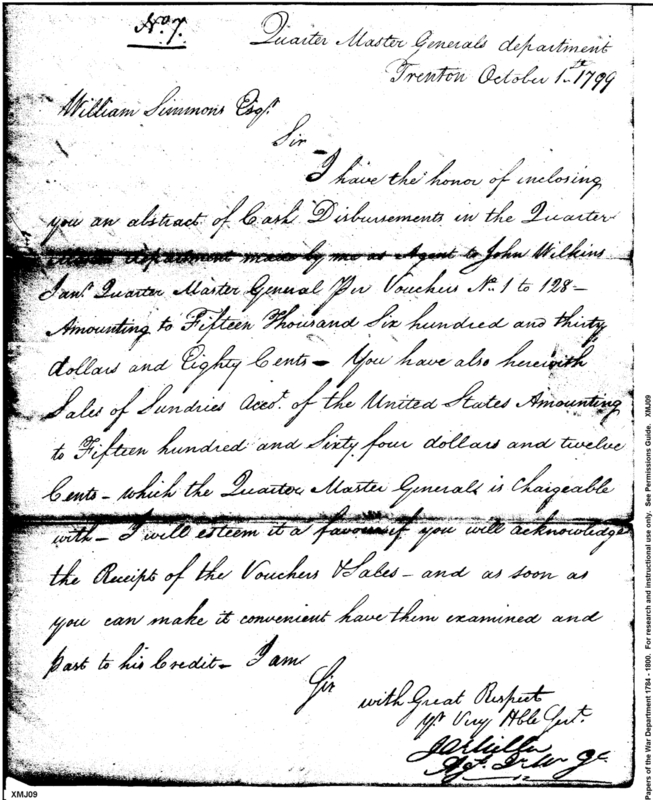 No. 7.
Quarter Master Generals department
Trenton October 1st 1799
William Simmons Esqr.
Sir
I have the honor of inclosing
you an abstract of Cash Disbursements in the Quarter
Master department made by me as Agent to John Wilkins
Junr. Quarter Master General Per Vouchers No. 1 to 128 –
Amounting to Fifteen Thousand Six hundred and thirty
dollars and Eighty Cents – You have also herewith
Sales of Sundries Acct. of the United States Amounting
to Fifteen hundred and Sixty four dollars and twelve
Cents – which the Quarter Master Generals is Chargeable
with – I will esteem it a favour if you will acknowledge
the Receipt of the Vouchers & Sales – and as soon as
you can make it convenient have them examined and
past to his Credit – I am
Sir
with Great Respect
yr. Very Hble Servt.
XMJ09
Papers of the War Department 1784 - 1800. For research and instructional use only. See Permissions Guide. XMJ09